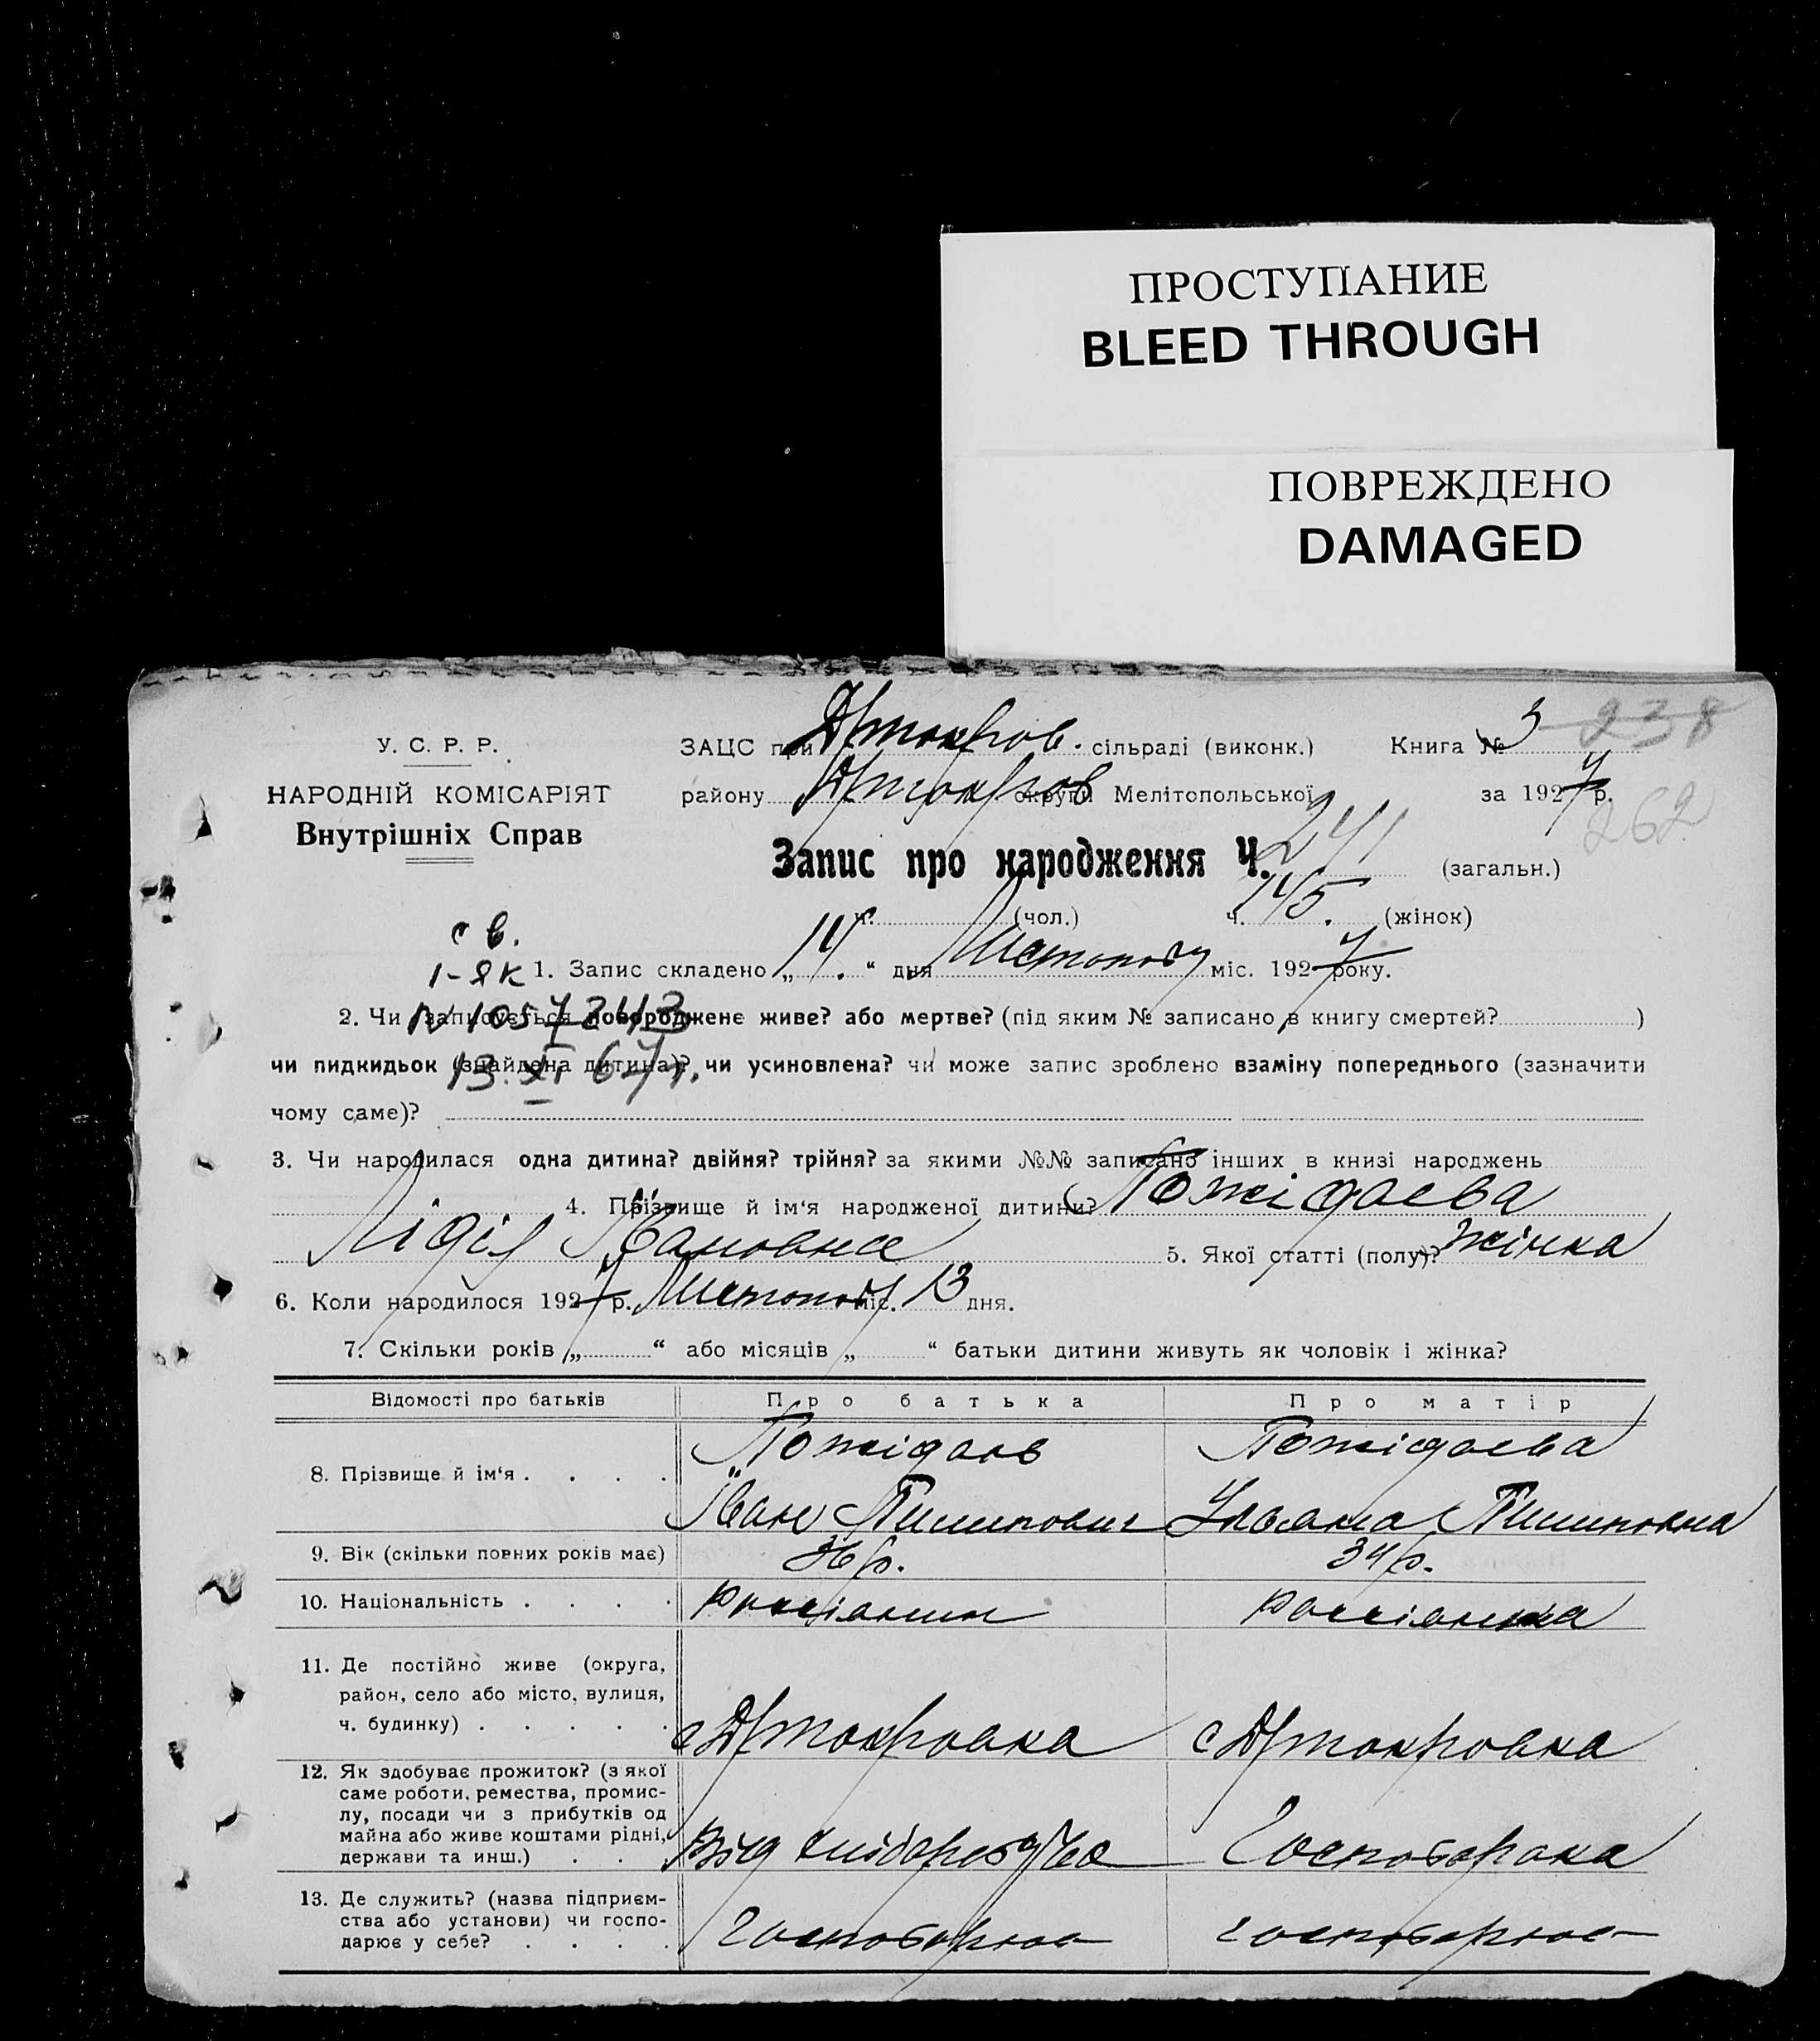 ПРОСТУПАНИЕ
BLEED THROUGH
ПОВРЕЖДЕНО
DAMAGED
У. С. Р. Р.
НАРОДНІЙ КОМІСАРІЯТ
Внутрішніх Справ
ЗАЦС при сільраді (виконк.) Книга № 3 238
району округи Мелітопольської за 1927 р.
262
Запис про народження Ч. 241 (загальн.)
ч. (чол.) ч. 145. (жінок)
св.
I-ЯК 1. Запис складено „14.“ дня Листопаду міс. 1927 року.
2. Чи записується новороджене живе? або мертве? (під яким № записано в книгу смертей? )
чи пидкидьок (знайдена дитина)? чи усиновлена? чи може запис зроблено взаміну попереднього (зазначити
13.XI 67г.
чому саме)?
3. Чи народилася одна дитина? двійня? трійня? за якими №№ записано інших в книзі народжень
4. Прізвище й ім‘я народженої дитини? Пожідаєва
Лідія Івановна 5. Якої статті (полу)? жінка
6. Коли народилося 1927 р. Листопаду міс. 13 дня.
7. Скільки років „ “ або місяців „ “ батьки дитини живуть як чоловік і жінка?
Відомості про батьків Про батька Про матір
8. Прізвище й ім‘я . . . . Пожідаєв Пожідаєва
Іван Пилипович Ульяна Пилиповна
9. Вік (скільки повних років має) 36 р. 34 р.
10. Національність . . . . россіянин россіянка
11. Де постійно живе (округа,
район, село або місто, вулиця,
ч. будинку) . . . . .
12. Як здобуває прожиток? (з якої
саме роботи, ремества, промис-
лу, посади чи з прибутків од
майна або живе коштами рідні,
держави та инш.) . . Від хліборобства
13. Де служить? (назва підприєм-
ства або установи) чи госпо-
дарює у себе? . . . . господарює господарює